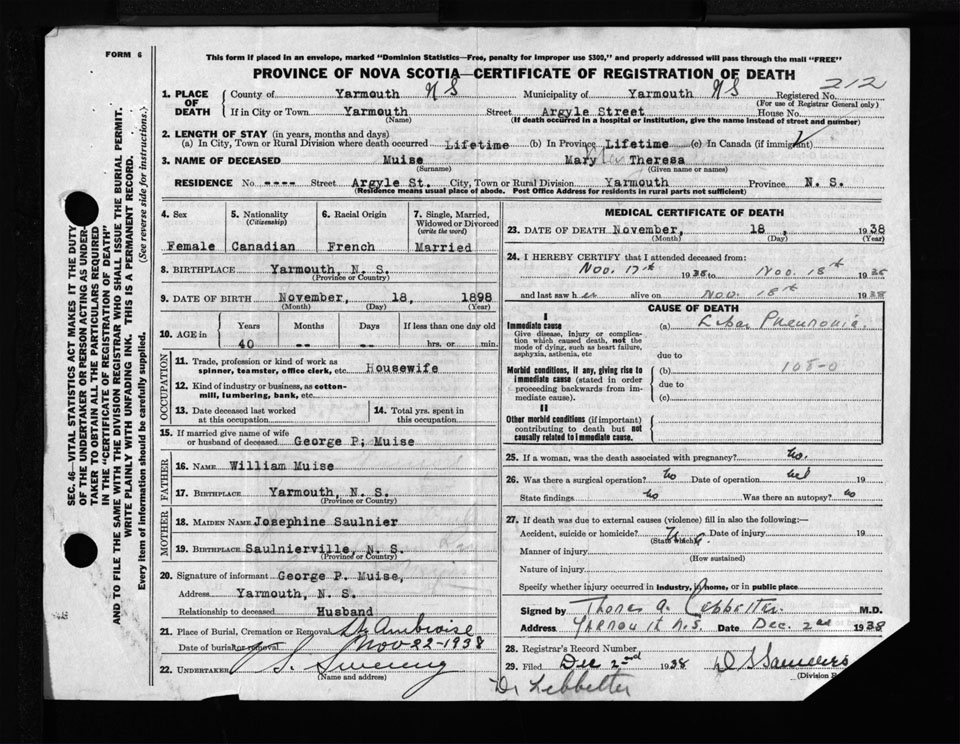 FORM 6
This form if placed in an envelope, marked "Dominion Statistics—Free, penalty for improper use $300," and properly addressed will pass through the mail "FREE"
PROVINCE OF NOVA SCOTIA—CERTIFICATE OF REGISTRATION OF DEATH
212
1. PLACE OF DEATH County of Yarmouth N S Municipality of Yarmouth N S Registered No.
(For use of Registrar General only)
If in City or Town Yarmouth Street Argyle Street House No.
(Name) (If death occurred in a hospital or institution, give the name instead of street and number)
2. LENGTH OF STAY (in years, months and days)
(a) In City, Town or Rural Division where death occurred Lifetime (b) In Province Lifetime (c) In Canada (if immigrant)
3. NAME OF DECEASED Muise Mary Theresa
(Surname) (Given name or names)
RESIDENCE No. ---- Street Argyle St. City, Town or Rural Division Yarmouth Province N. S.
(Residence means usual place of abode. Post Office Address for residents in rural parts not sufficient)
4. Sex 5. Nationality (Citizenship) 6. Racial Origin 7. Single, Married, Widowed or Divorced (write the word)
Female Canadian French Married
8. BIRTHPLACE Yarmouth, N. S.
(Province or Country)
9. DATE OF BIRTH November, 18, 1898
(Month) (Day) (Year)
10. AGE in Years Months Days If less than one day old
40 -- -- hrs. or min.
OCCUPATION
11. Trade, profession or kind of work as spinner, teamster, office clerk, etc. Housewife
12. Kind of industry or business, as cotton-mill, lumbering, bank, etc.
13. Date deceased last worked at this occupation 14. Total yrs. spent in this occupation
15. If married give name of wife or husband of deceased George P; Muise
FATHER
16. NAME William Muise
17. BIRTHPLACE Yarmouth, N. S.
(Province or Country)
MOTHER
18. MAIDEN NAME Josephine Saulnier
19. BIRTHPLACE Saulnierville, N. S.
(Province or Country)
20. Signature of informant George P. Muise,
Address Yarmouth, N. S.
Relationship to deceased Husband
21. Place of Burial, Cremation or Removal St Ambroise
Date of burial or removal Nov 22-1938
22. UNDERTAKER V. S. Sweeny
(Name and address)
MEDICAL CERTIFICATE OF DEATH
23. DATE OF DEATH November, 18, 1938
(Month) (Day) (Year)
24. I HEREBY CERTIFY that I attended deceased from:
Nov. 17th 1938 to Nov. 18th 1938
and last saw her alive on Nov. 18th 1938
CAUSE OF DEATH
I
Immediate cause (a) Lobar Pneumonia
Give disease, injury or complication which caused death, not the mode of dying, such as heart failure, asphyxia, asthenia, etc
due to
Morbid conditions, if any, giving rise to immediate cause (stated in order proceeding backwards from immediate cause). (b) 108-0
due to
(c)
II
Other morbid conditions (if important) contributing to death but not causally related to immediate cause.
25. If a woman, was the death associated with pregnancy? no.
26. Was there a surgical operation? no Date of operation 19
State findings no Was there an autopsy? no
27. If death was due to external causes (violence) fill in also the following:—
Accident, suicide or homicide? Date of injury 19
(State which)
Manner of injury
(How sustained)
Nature of injury
Specify whether injury occurred in industry, home, or in public place
Signed by Thomas A. Lebbetter M.D.
Address Yarmouth N.S. Date Dec. 2nd 1938
28. Registrar's Record Number
29. Filed Dec 2nd 1938 D S Saunders
(Division R
Dr Lebbetter
SEC. 46—VITAL STATISTICS ACT MAKES IT THE DUTY
OF THE UNDERTAKER OR PERSON ACTING AS UNDER-
TAKER TO OBTAIN ALL THE PARTICULARS REQUIRED
IN THE "CERTIFICATE OF REGISTRATION OF DEATH"
AND TO FILE THE SAME WITH THE DIVISION REGISTRAR WHO SHALL ISSUE THE BURIAL PERMIT.
WRITE PLAINLY WITH UNFADING INK. THIS IS A PERMANENT RECORD.
Every item of information should be carefully supplied. (See reverse side for instructions.)